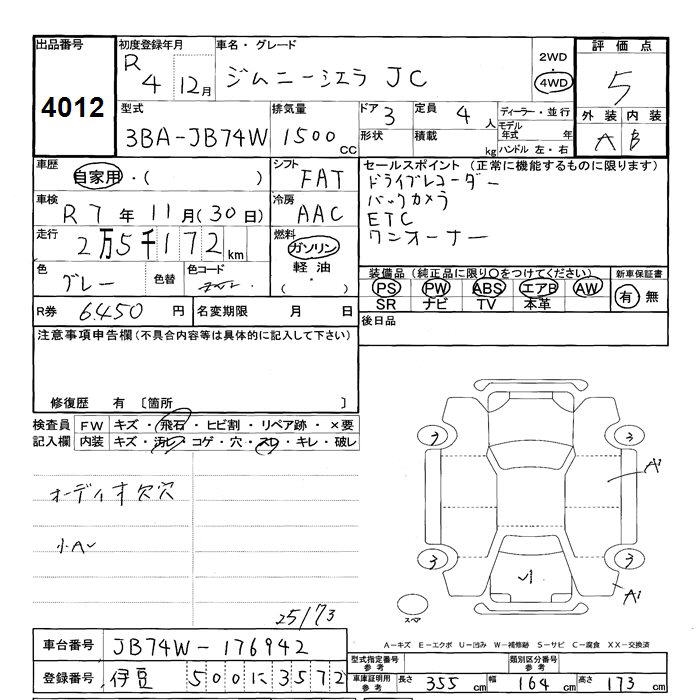 出品番号
4012
初度登録年月
R 4 12月
車名・グレード
ジムニーシエラ JC
2WD
4WD
評価点
5
外装 内装
A B
型式
3BA-JB74W
排気量
1500 CC
ドア 3
定員 4 人
形状
積載 kg
ディーラー・並行
モデル年式 年
ハンドル 左・右
車歴
自家用・( )
シフト
FAT
車検
R 7 年 11 月(30日)
冷房
AAC
走行
2万5千172 km
燃料
ガソリン
軽油
( ・ )
色
グレー
色替
色コード
セールスポイント(正常に機能するものに限ります)
ドライブレコーダー
バックカメラ
ETC
ワンオーナー
装備品(純正品に限り○をつけてください)
PS PW ABS エアB AW
SR ナビ TV 本革
新車保証書
有 無
R券 6450 円
名変期限 月 日
後日品
注意事項申告欄(不具合内容等は具体的に記入して下さい)
修復歴 有 〔箇所 〕
検査員
記入欄
FW キズ・飛石・ヒビ割・リペア跡・×要
内装 キズ・汚レ・コゲ・穴・スレ・キレ・破レ
オーディオ欠穴
小A
25/73
3 3
A1
3 3
A1
スペア
A-キズ E-エクボ U-凹み W-補修跡 S-サビ C-腐食 XX-交換済
車台番号
JB74W-176942
登録番号
伊豆 500 に 3572
型式指定番号
参考
類別区分番号
参考
車庫証明用
参考
長さ 355 cm
幅 164 cm
高さ 173 cm